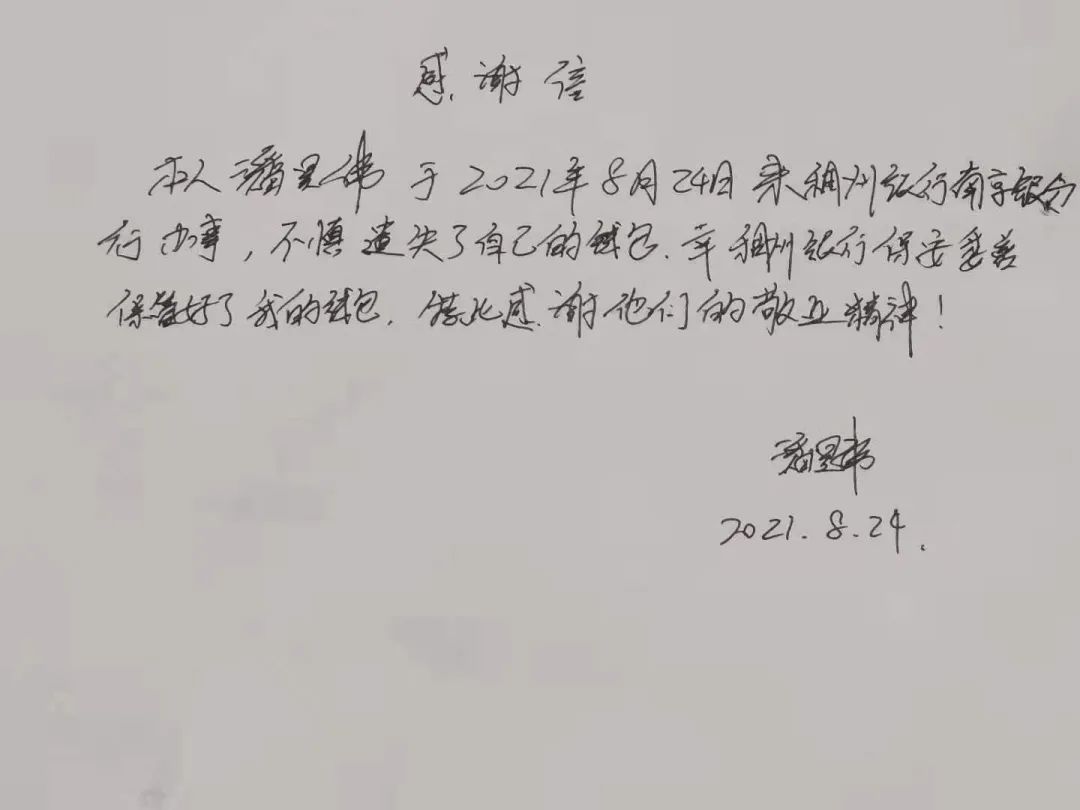 感谢信
本人潘昱 于2021年8月24日来稠州银行南京分
行办事，不慎遗失了自己的钱包．幸稠州银行保安妥善
保管好了我的钱包．借此感谢他们的敬业精神！
潘昱
2021.8.24.